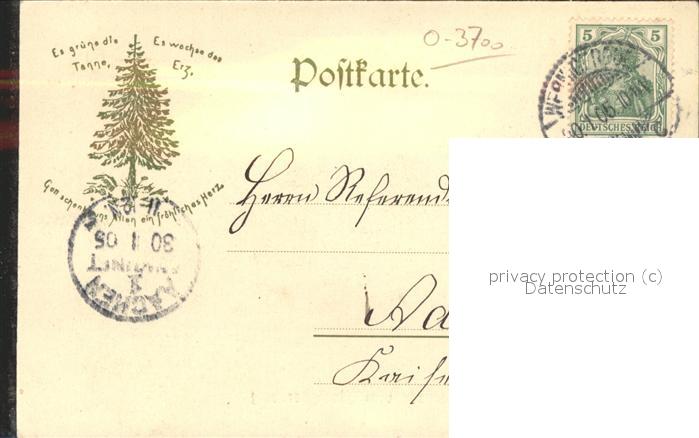 Es grüne die
Tanne,
Es wachse das
Erz,
Gott schenke uns Allen ein fröhliches Herz.
O-3700
Postkarte.
5 5
DEUTSCHES REICH
Herrn Referend
AACHEN
1
30 1 05
11-12
Aa
Kaise
privacy protection (c)
Datenschutz